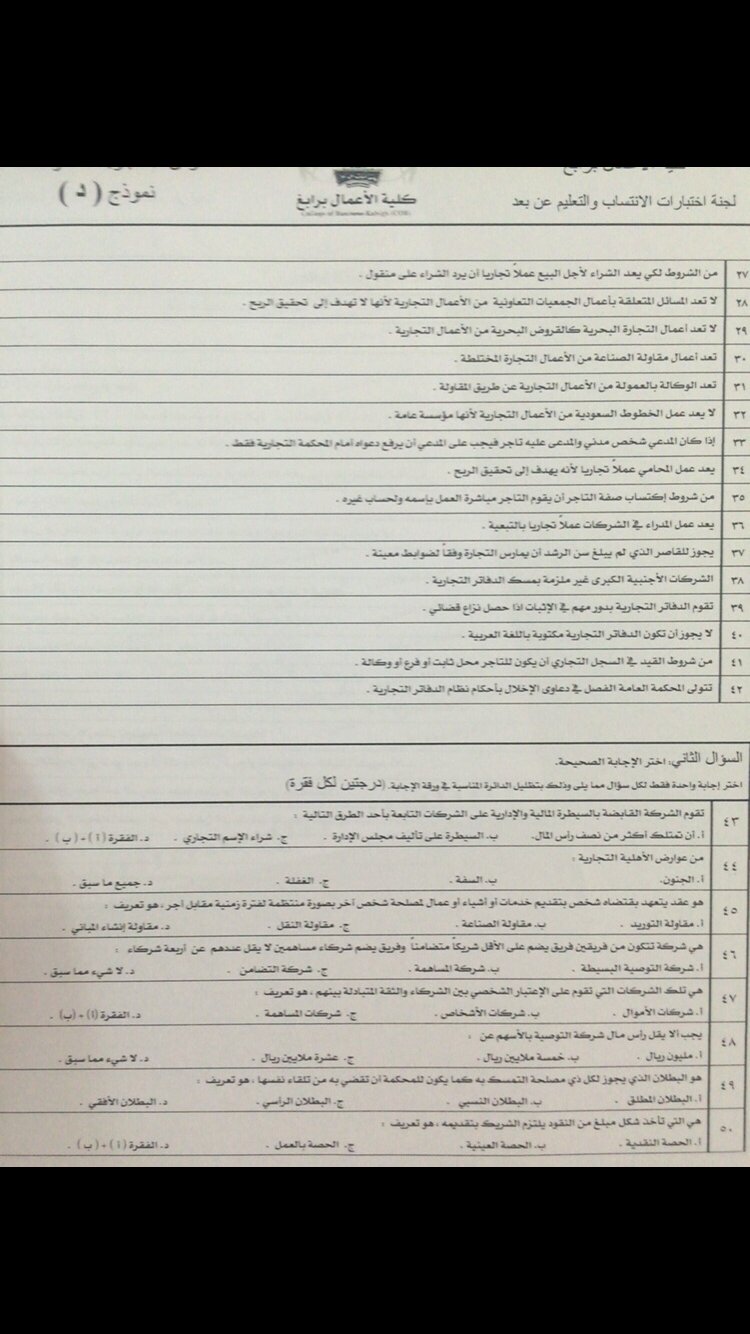 نموذج ( د )
كلية الأعمال برابغ
College of Business-Rabigh (COB)
لجنة اختبارات الانتساب والتعليم عن بعد
٢٧ من الشروط لكي يعد الشراء لأجل البيع عملاً تجاريا أن يرد الشراء على منقول .
٢٨ لا تعد المسائل المتعلقة بأعمال الجمعيات التعاونية من الأعمال التجارية لأنها لا تهدف إلى تحقيق الربح .
٢٩ لا تعد أعمال التجارة البحرية كالقروض البحرية من الأعمال التجارية .
٣٠ تعد أعمال مقاولة الصناعة من الأعمال التجارة المختلطة .
٣١ تعد الوكالة بالعمولة من الأعمال التجارية عن طريق المقاولة .
٣٢ لا يعد عمل الخطوط السعودية من الأعمال التجارية لأنها مؤسسة عامة .
٣٣ إذا كان المدعي شخص مدني والمدعى عليه تاجر فيجب على المدعي أن يرفع دعواه أمام المحكمة التجارية فقط .
٣٤ يعد عمل المحامي عملاً تجاريا لأنه يهدف إلى تحقيق الربح .
٣٥ من شروط إكتساب صفة التاجر أن يقوم التاجر مباشرة العمل بإسمه ولحساب غيره .
٣٦ يعد عمل المدراء في الشركات عملاً تجاريا بالتبعية .
٣٧ يجوز للقاصر الذي لم يبلغ سن الرشد أن يمارس التجارة وفقاً لضوابط معينة .
٣٨ الشركات الأجنبية الكبرى غير ملزمة بمسك الدفاتر التجارية .
٣٩ تقوم الدفاتر التجارية بدور مهم في الإثبات اذا حصل نزاع قضائي .
٤٠ لا يجوز أن تكون الدفاتر التجارية مكتوبة باللغة العربية .
٤١ من شروط القيد في السجل التجاري أن يكون للتاجر محل ثابت أو فرع أو وكالة .
٤٢ تتولى المحكمة العامة الفصل في دعاوى الإخلال بأحكام نظام الدفاتر التجارية .
السؤال الثاني: اختر الإجابة الصحيحة.
اختر إجابة واحدة فقط لكل سؤال مما يلى وذلك بتظليل الدائرة المناسبة في ورقة الإجابة. (درجتين لكل فقرة)
٤٣ تقوم الشركة القابضة بالسيطرة المالية والإدارية على الشركات التابعة بأحد الطرق التالية :
أ. أن تمتلك أكثر من نصف رأس المال. ب. السيطرة على تأليف مجلس الإدارة . ج. شراء الإسم التجاري . د. الفقرة (أ) + (ب) .
٤٤ من عوارض الأهلية التجارية :
أ. الجنون. ب. السفة . ج. الغفلة . د. جميع ما سبق .
٤٥ هو عقد يتعهد بقتضاه شخص بتقديم خدمات أو أشياء أو عمال لمصلحة شخص آخر بصورة منتظمة لفترة زمنية مقابل أجر ، هو تعريف :
أ. مقاولة التوريد . ب. مقاولة الصناعة . ج. مقاولة النقل . د. مقاولة إنشاء المباني .
٤٦ هي شركة تتكون من فريقين فريق يضم على الأقل شريكاً متضامناً وفريق يضم شركاء مساهمين لا يقل عددهم عن أربعة شركاء :
أ. شركة التوصية البسيطة . ب. شركة المساهمة . ج. شركة التضامن . د. لا شيء مما سبق .
٤٧ هي تلك الشركات التي تقوم على الإعتبار الشخصي بين الشركاء والثقة المتبادلة بينهم ، هو تعريف :
أ. شركات الأموال . ب. شركات الأشخاص . ج. شركات المساهمة . د. الفقرة (أ) + (ب) .
٤٨ يجب ألا يقل رأس مال شركة التوصية بالأسهم عن :
أ. مليون ريال . ب. خمسة ملايين ريال . ج. عشرة ملايين ريال . د. لا شيء مما سبق .
٤٩ هو البطلان الذي يجوز لكل ذي مصلحة التمسك به كما يكون للمحكمة أن تقضي به من تلقاء نفسها ، هو تعريف :
أ. البطلان المطلق . ب. البطلان النسبي . ج. البطلان الرأسي . د. البطلان الأفقي .
٥٠ هي التي تأخذ شكل مبلغ من النقود يلتزم الشريك بتقديمه ، هو تعريف :
أ. الحصة النقدية . ب. الحصة العينية . ج. الحصة بالعمل . د. الفقرة (أ) + (ب) .